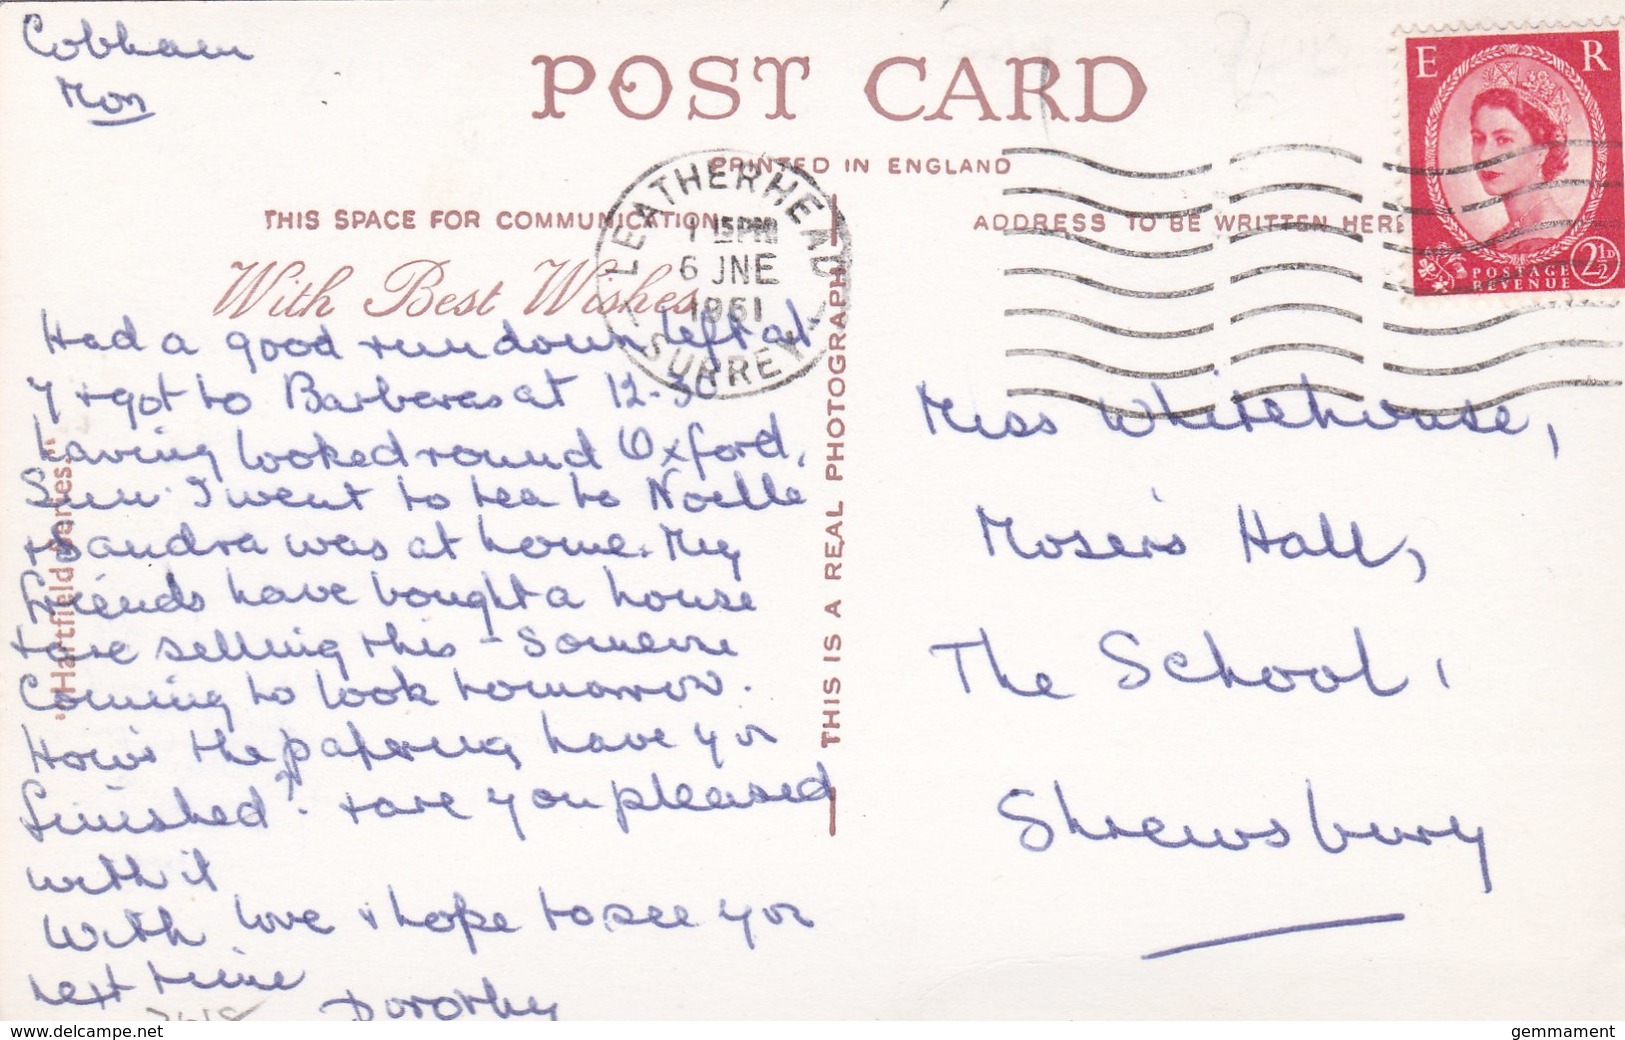 Cobham
Mon
POST CARD
PRINTED IN ENGLAND
THIS SPACE FOR COMMUNICATION
ADDRESS TO BE WRITTEN HERE
With Best Wishes
LEATHERHEAD
1 15 PM
6 JNE
1961
SURREY
E R
POSTAGE
REVENUE
2½D
Had a good run down left at
7 & got to Barbaras at 12-30
having looked round Oxford.
Sun. I went to tea to Noelle
& Sandra was at home. My
friends have bought a house
& are selling this – Someone
Coming to look tomorrow.
How's the papering have you
finished? & are you pleased
with it
With love & hope to see you
next time
Dorothy
"Hartfield Series"
THIS IS A REAL PHOTOGRAPH
Miss Whitehouse,
Moser's Hall,
The School,
Shrewsbury
delcampe.net
gemmament